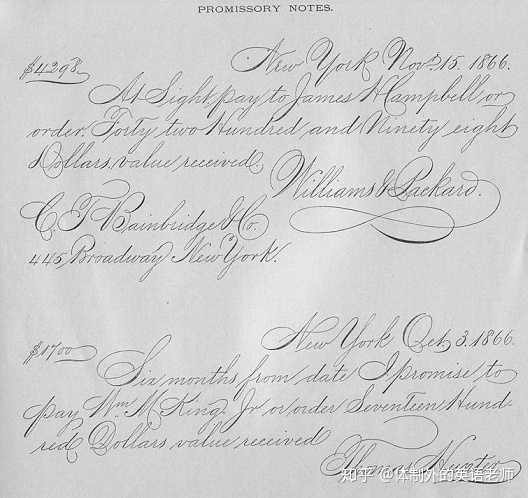 PROMISSORY NOTES.
$4298. New York Nov. 15. 1866.
At Sight pay to James H Campbell or
order. Forty two Hundred and Ninety eight
Dollars, value received.
Williams & Packard.
C. T. Bainbridge & Co.
445 Broadway New York.
$1700 New York Oct 3. 1866.
Six months from date I promise to
pay Wm. M King. Jr or order Seventeen Hund-
red Dollars value received
Thomas Hunter
知乎 @体制外的英语老师